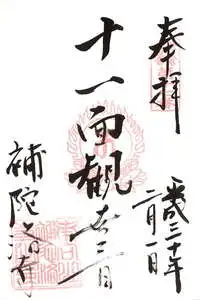 奉拝
平成三十年
二月一日
十一面觀世音
補陀洛寺